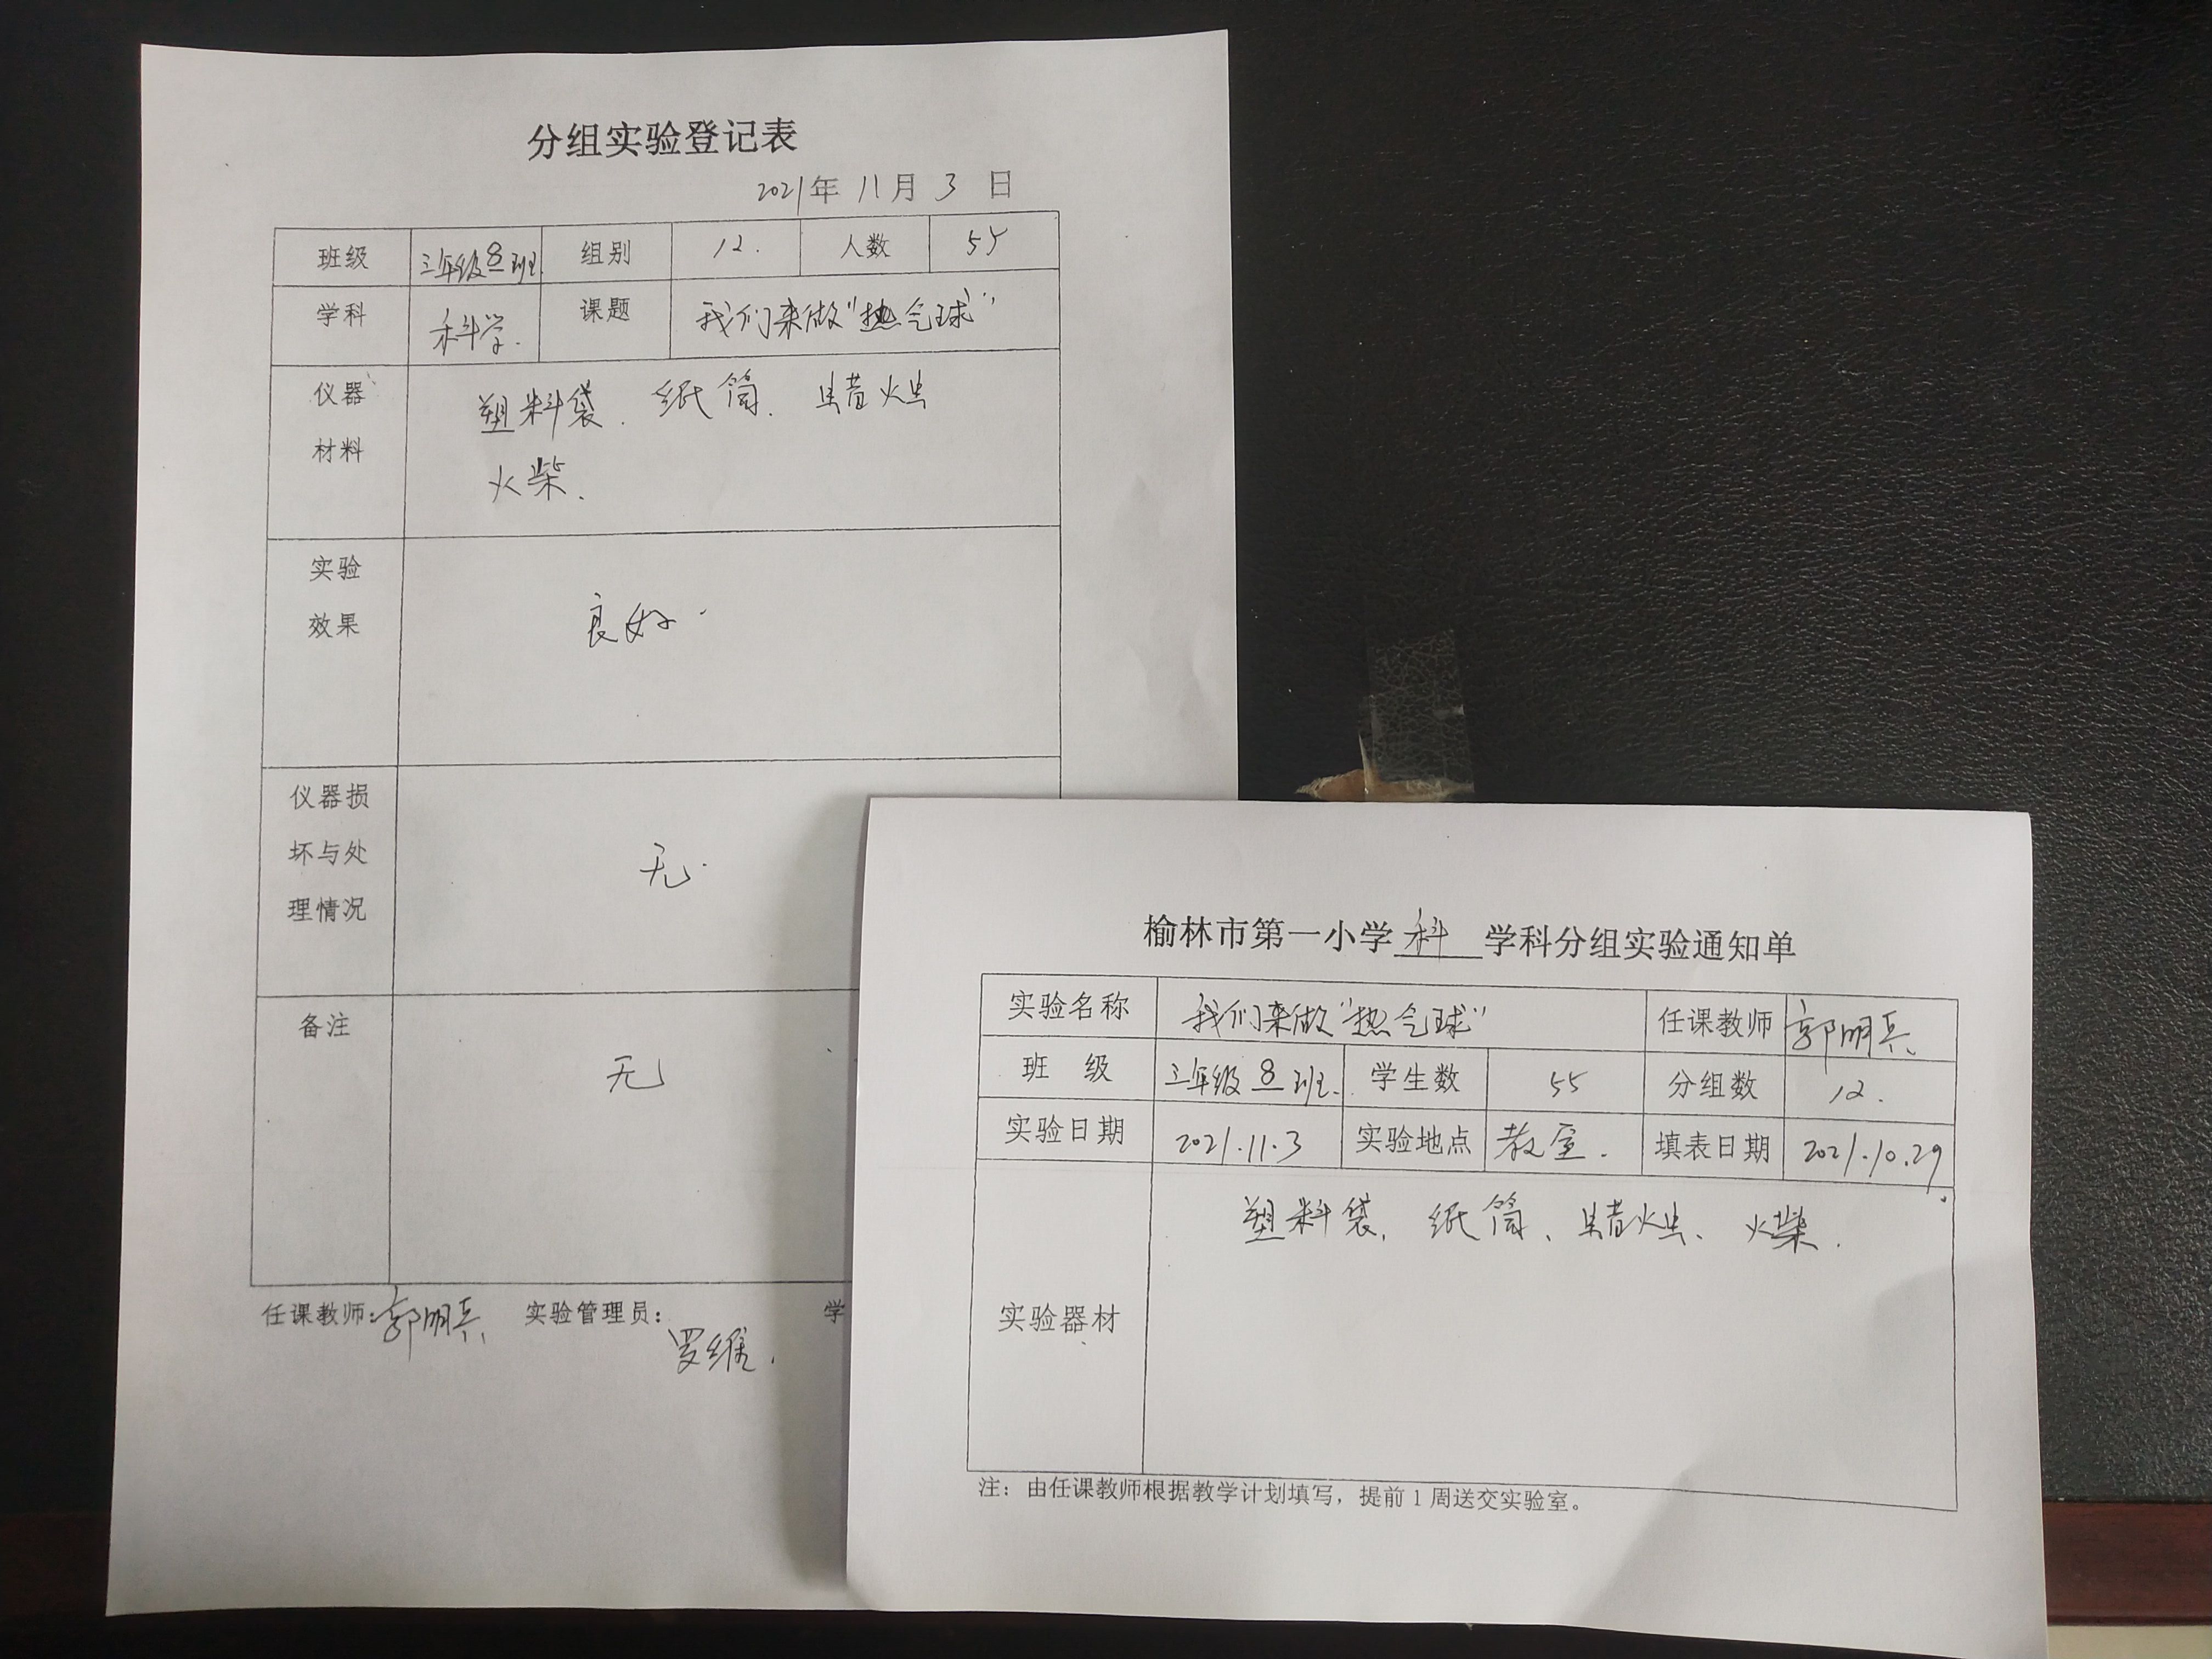 分组实验登记表
2021年 11月 3 日
班级 三年级8班 组别 12. 人数 55
学科 科学. 课题 我们来做"热气球"
仪器材料 塑料袋. 纸筒. 蜡烛
火柴.
实验效果 良好.
仪器损坏与处理情况 无.
备注 无
任课教师:郭明兵. 实验管理员: 罗维. 学
榆林市第一小学 科 学科分组实验通知单
实验名称 我们来做"热气球" 任课教师 郭明兵.
班 级 三年级 8 班. 学生数 55 分组数 12.
实验日期 2021.11.3 实验地点 教室. 填表日期 2021.10.29.
实验器材 塑料袋, 纸筒、蜡烛、火柴.
注：由任课教师根据教学计划填写，提前1周送交实验室。